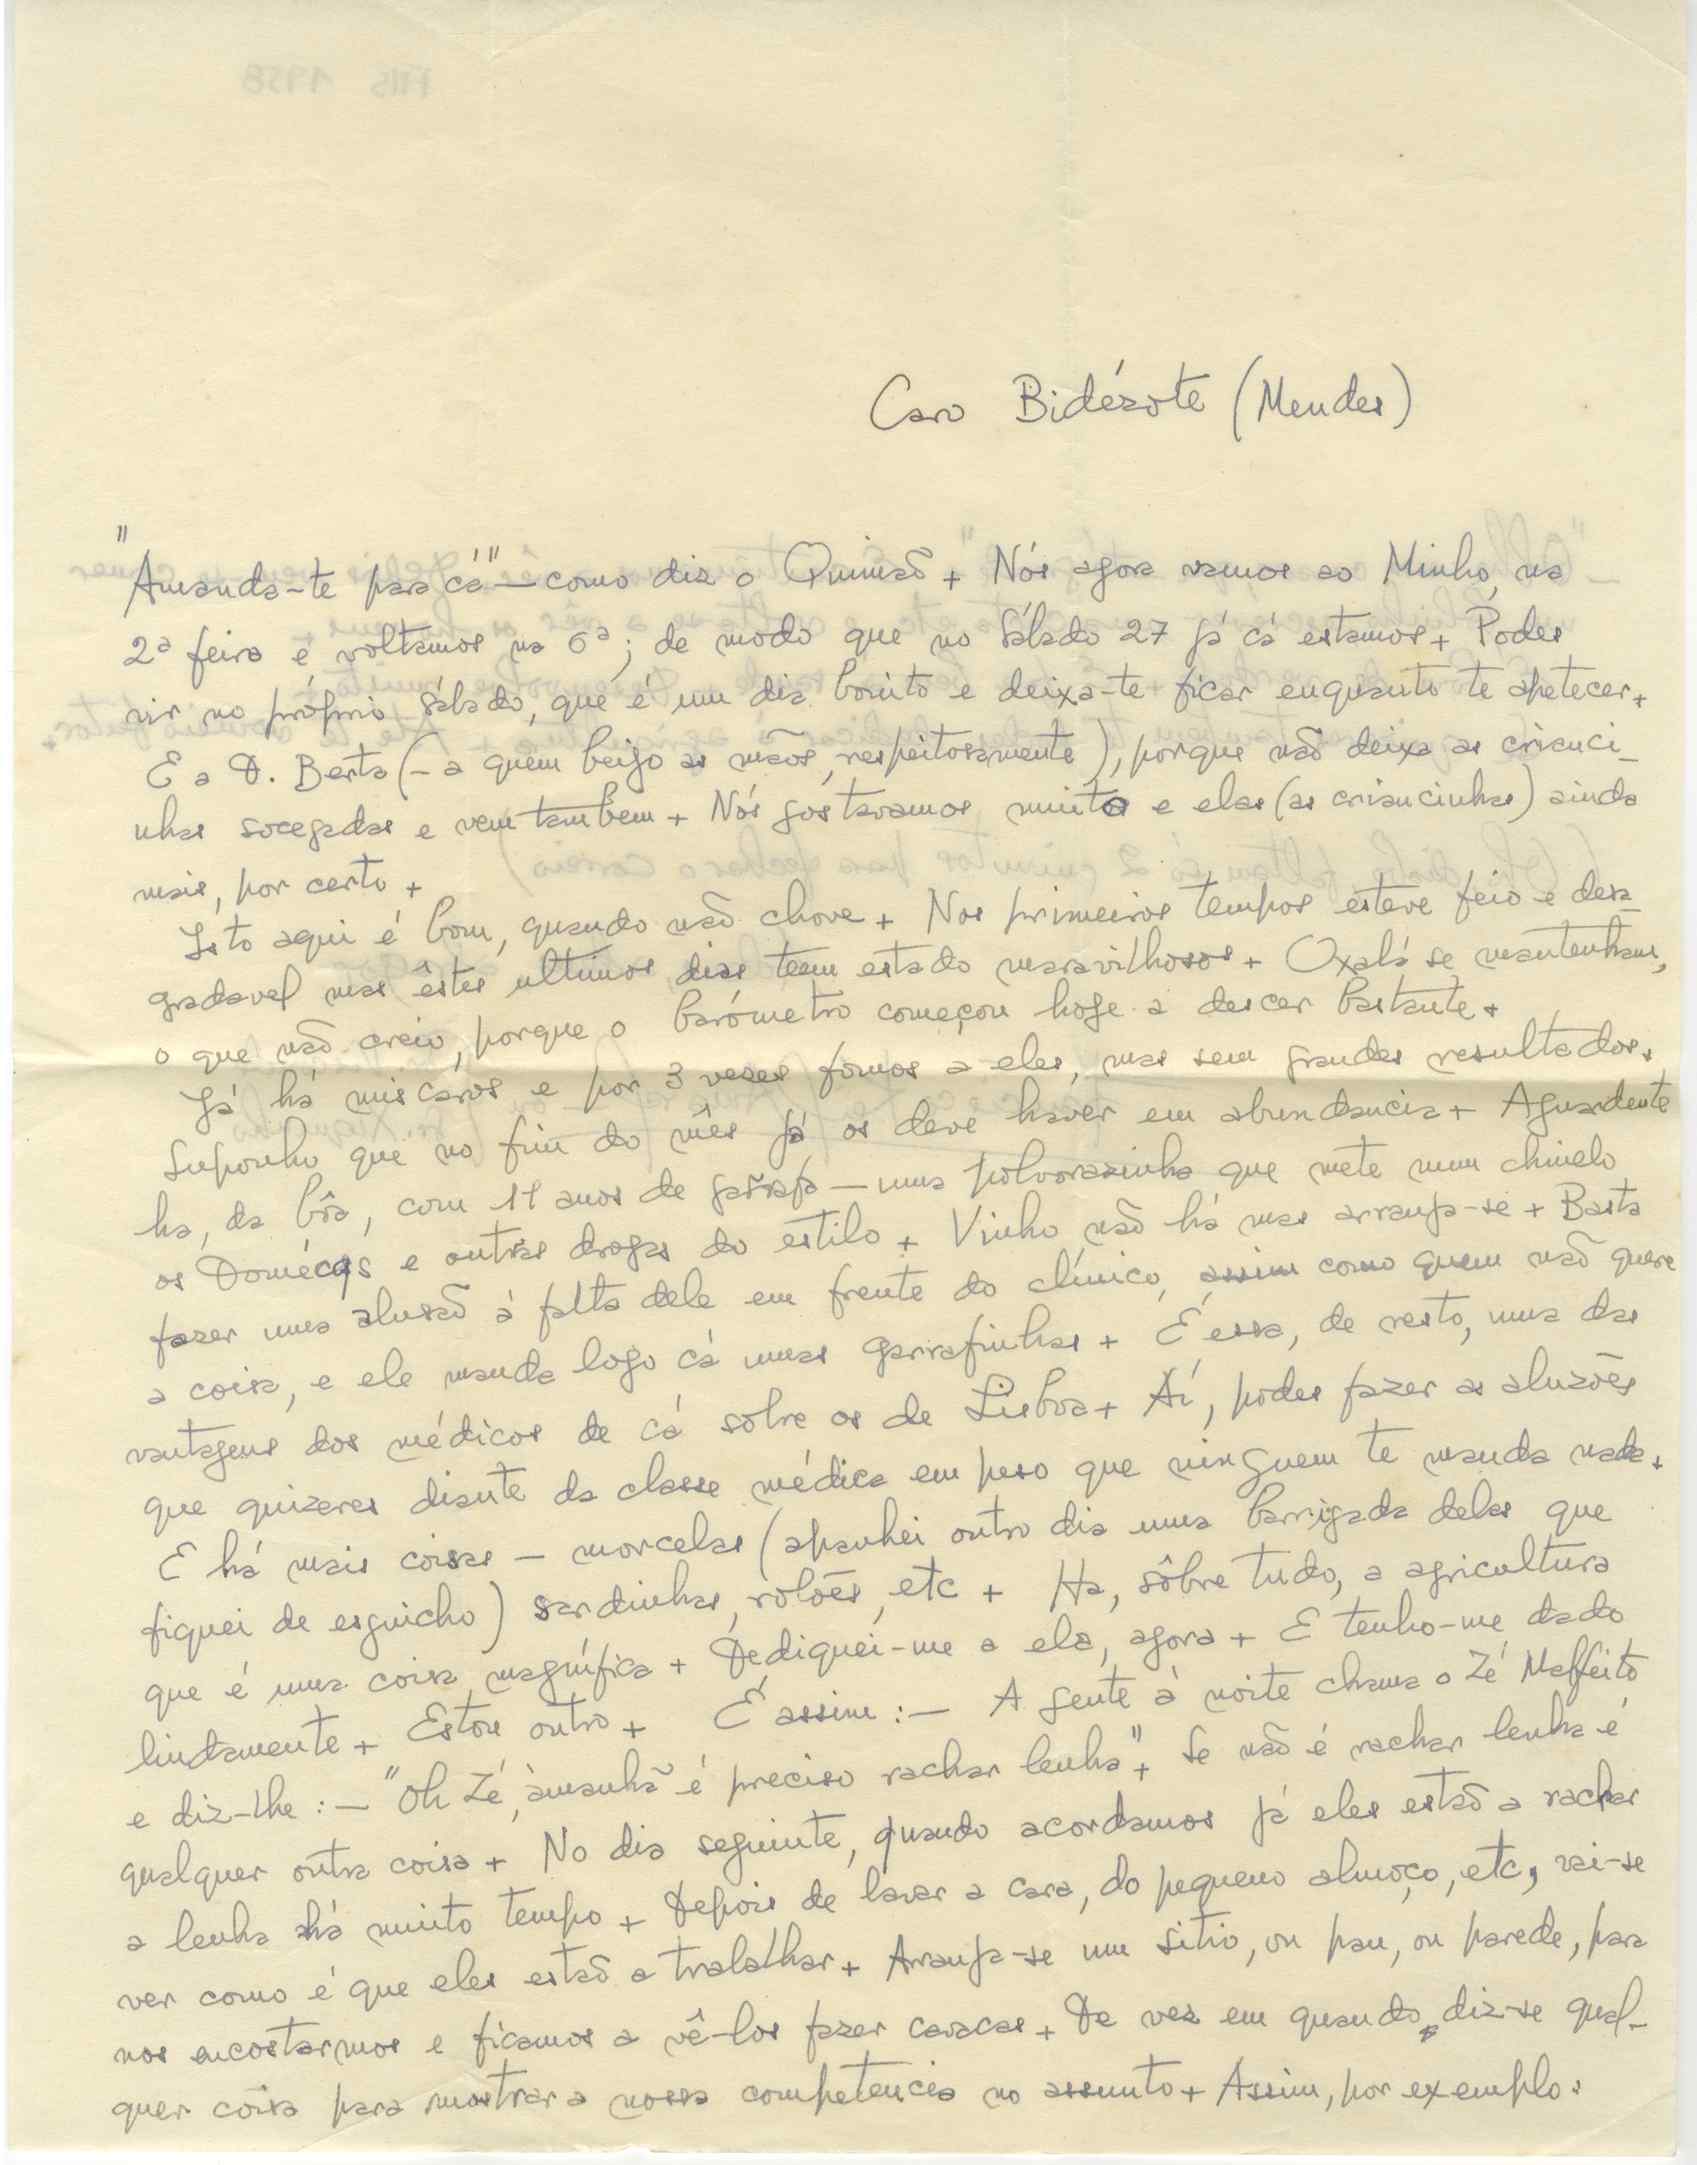 Caro Bidézote (Mendes)
"Amanda-te para cá" — como diz o Quimaõ + Nós agora vamos ao Minho, na
2ª feira e voltamos na 6ª; de modo que no Sábado 27 já cá estamos + Podes
vir no próprio sábado, que é um dia bonito e deixa-te ficar enquanto te apetecer +
E a D. Berta (- a quem beijo as mãos, respeitosamente), porque naõ deixa as crianci-
nhas socegadas e vem tambem + Nós gostavamos muito e elas (as criancinhas) ainda
mais, por certo +
Isto aqui é bom, quando naõ chove + Nos primeiros tempos esteve feio e desa-
gradavel mas êstes ultimos dias teem estado maravilhosos + Oxalá se mantenham,
o que naõ creio, porque o barómetro começou hoje a descer bastante +
Já há miscáros e por 3 vezes fomos a eles, mas sem grandes resultados.
Suponho que no fim do mês já os deve haver em abundancia + Aguardente
ha, da bôa, com 11 anos de garrafa — uma polvorasinha que mete num chinelo
os Domécqs e outras drogas do estilo + Vinho naõ há mas arranja-se + Basta
fazer uma alusaõ à falta dele em frente do clínico, assim como quem naõ quere
a coisa, e ele manda logo cá umas garrafinhas + É essa, de resto, uma das
vantagens dos médicos de cá sôbre os de Lisboa + Aí, podes fazer as aluzões
que quizeres diante da classe médica em peso que ninguem te manda nada.
E há mais coisas — morcelas (apanhei outro dia uma barrigada delas que
fiquei de esguicho) sardinhas, rolões, etc + Ha, sôbre tudo, a agricultura
que é uma coisa magnífica + Dediquei-me a ela, agora + E tenho-me dado
lindamente + Estou outro + É assim :— A gente à noite chama o Zé Malfeito
e diz-lhe :— "Oh Zé, àmanhã é preciso rachar lenha" + Se naõ é rachar lenha é
qualquer outra coisa + No dia seguinte, quando acordamos já eles estaõ a rachar
a lenha há muito tempo + Depois de lavar a cara, do pequeno almoço, etc, vai-se
ver como é que eles estaõ a trabalhar + Arranja-se um sitio, ou pau, ou parede, para
nos encostarmos e ficamos a vê-los fazer cavacas + De vez em quando, diz-se qual-
quer coisa para mostrar a nossa competencia no assunto + Assim, por exemplo: